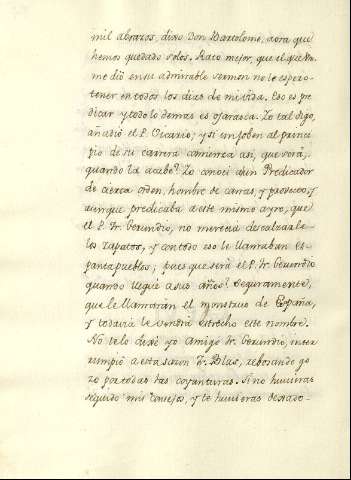 mil abrazos, dixo Don Bartolomé, aora que
hemos quedado solos. Rato mejor, que el que Vm.
me dió en su admirable sermon no le espero
tener en todos los dias de mi vida. Eso es pre
dicar y todo lo demas es ojarasca. Lo tal digo,
añadió el P. Vicario; y si un joben al princi
pio de su carrera comienza asi, que será,
quando la acabe? Lo conocí à un Predicador
de cierta orden, hombre de canas, y provecto, y
aunque predicaba a este mismo ayre, que
el P. Fr. Gerundio, no merecia descalzarle
los zapatos, y con todo eso le llamaban Es-
panta pueblos; pues que será el P. Fr. Gerundio
quando llegue a sus años? Seguramente,
que le llamarán el monstruo de España,
y todavia le vendrá estrecho este nombre.
No te lo dixe yo Amigo Fr. Gerundio, inter
rumpió a esta sazon Fr. Blas, rebosando go
zo por todas las coyunturas. Si no huvieras
seguido mis consejos, y te huvieras dexado-